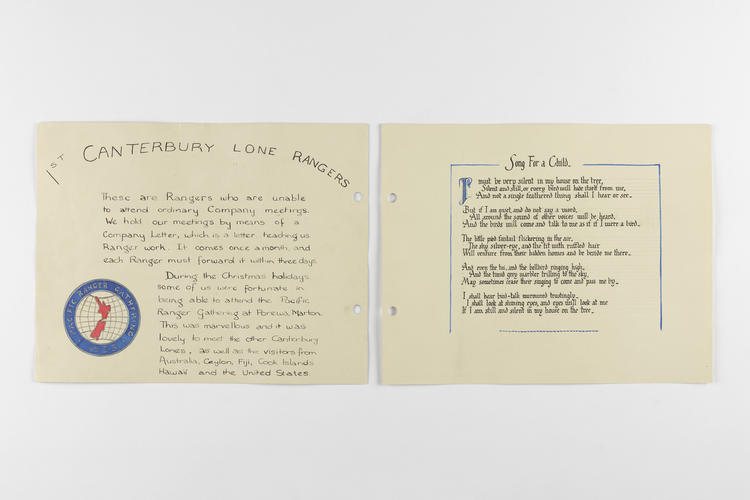 1ST CANTERBURY LONE RANGERS
These are Rangers who are unable
to attend ordinary Company meetings.
We hold our meetings by means of a
Company Letter, which is a letter teaching us
Ranger work. It comes once a month, and
each Ranger must forward it within three days.
During the Christmas holidays
some of us were fortunate in
being able to attend the Pacific
Ranger Gathering at Porewa, Marton.
This was marvellous and it was
lovely to meet the other Canterbury
Lones, as well as the visitors from
Australia, Ceylon, Fiji, Cook Islands
Hawaii and the United States.
PACIFIC RANGER GATHERING
Song For a Child.
I must be very silent in my house on the tree,
Silent and still, or every bird will hide itself from me,
And not a single feathered thing shall I hear or see.
But if I am quiet, and do not say a word,
All around the sound of other voices will be heard,
And the birds will come and talk to me as if I were a bird.
The little pied fantail flickering in the air,
The shy silver-eye, and the tit with ruffled hair
Will venture from their hidden homes and be beside me there.
And even the tui, and the bellbird ringing high,
And the kind grey warbler trilling to the sky,
May sometimes cease their singing to come and pass me by.
I shall hear bird-talk murmured trustingly,
I shall look at shining eyes, and eyes will look at me
If I am still and silent in my house on the tree.